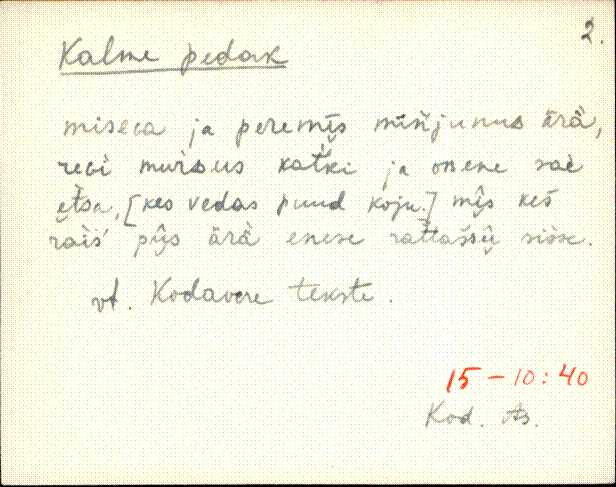 2.
Kalme pedak
miseca ja peremīs mińjunus ärä,
revi murdus katki ja onene saè
etsa, [kes vedas puud koju.] mīs kes
raiś pījs ärä enese rattassīj sisse.
vt. Kodavere tekste.
15 – 10:40
Kod. As.